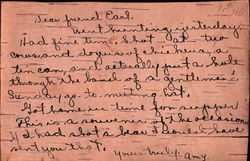 Dear friend Earl.
Went hunting yesterday.
Had fine time, shot at two
cows and dozen of chickens, a
tin can and actually put a hole
through the band of a gentlemen's
Sunday-go-to meeting hat.
Got home in time for supper
This is a souvenir of the occasion
If I had shot a bear I would have
sent you that.
Yours truly. Amy.